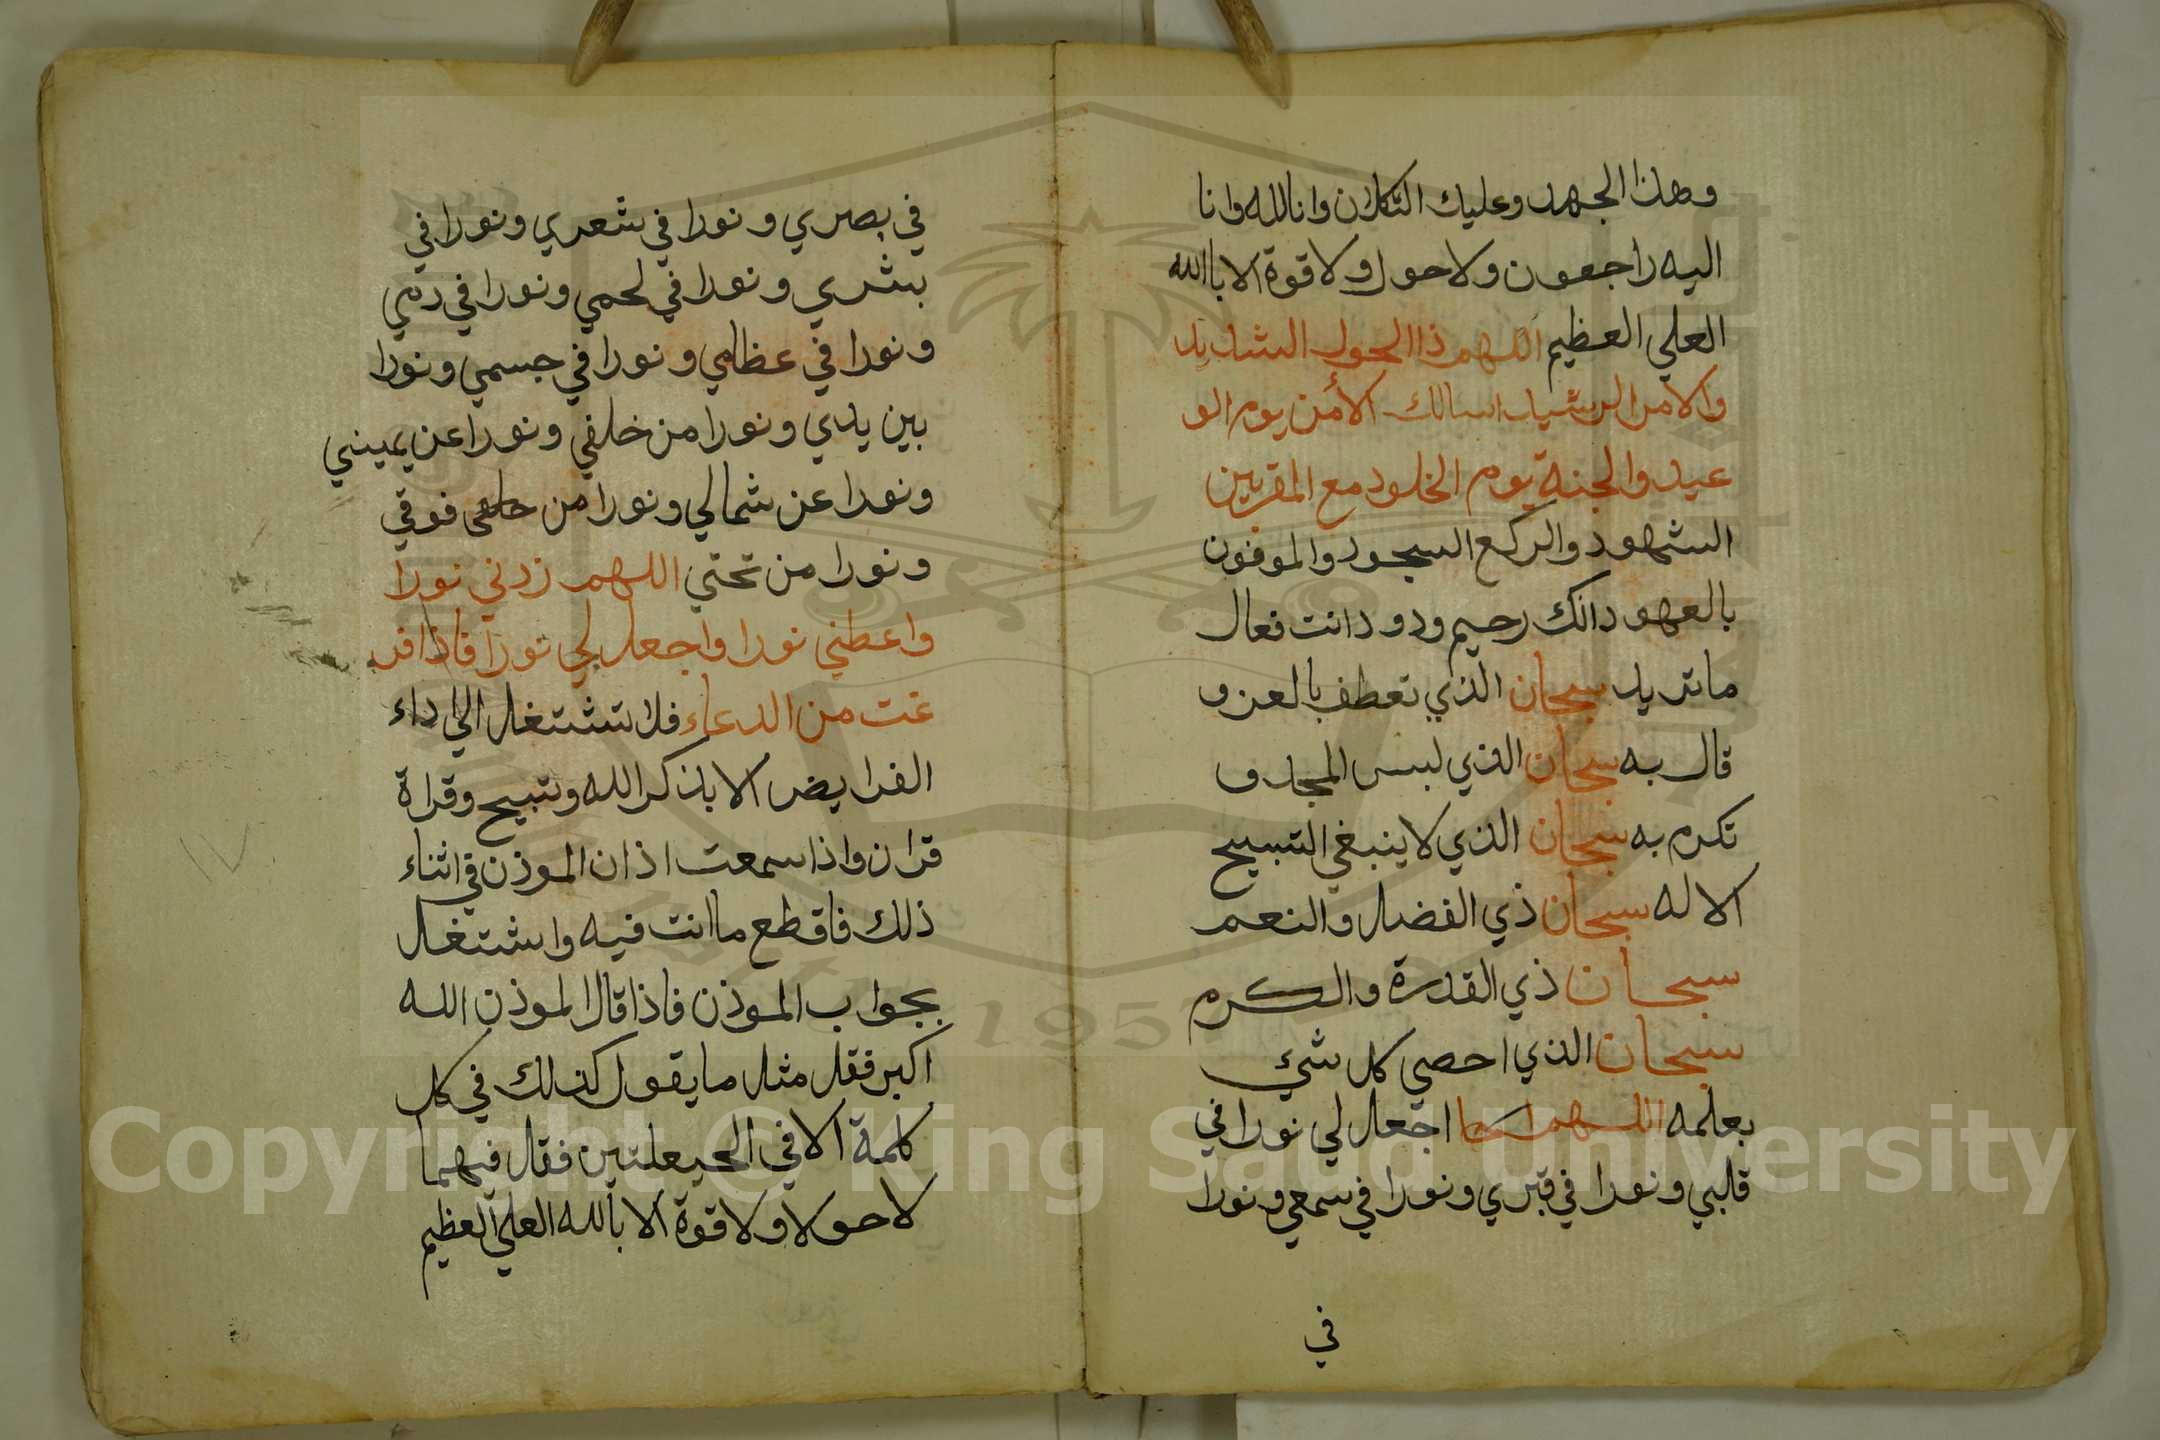 وهذا الجهد وعليك التكلان وانا لله وانا
اليه راجعون ولا حول ولا قوة الا باالله
العلي العظيم اللهم ذا الحول الشديد
والامر الرشيد اسالك الأمن يوم الو
عيد والجنة يوم الخلود مع المقربين
الشهود والركع السجود والموفون
بالعهود انك رحيم ودود انت فعال
ما تريد سبحان الذي تعطف بالعز و
قال به سبحان الذي لبس المجد و
تكرم به سبحان الذي لا ينبغي التسبيح
الا له سبحان ذي الفضل والنعم
سبحان ذي القدرة والكرم
سبحان الذي احصي كل شيء
بعلمه اللهم اجعل لي نورا في
قلبي ونورا في قبري ونورا في سمعي ونورا
في
في بصري ونورا في شعري ونورا في
بشري ونورا في لحمي ونورا في دمي
ونورا في عظامي ونورا في جسمي ونورا
بين يدي ونورا من خلفي ونورا عن يميني
ونورا عن شمالي ونورا من فوقي
ونورا من تحتي اللهم زدني نورا
واعطني نورا واجعل لي نورا فاذا فر
غت من الدعاء فلا تشتغل الي اداء
الفرايض الا بذكر الله وتسبيح وقراة
قران واذا سمعت اذان الموذن في اثناء
ذلك فاقطع ما انت فيه واشتغل
بجواب الموذن فاذا قال الموذن الله
اكبر فقل مثل ما يقول كذلك في كل
كلمة الا في الحيعلتين فقل فيهما
لا حولا ولا قوة الا بالله العلي العظيم
Copyright © King Saud University
1957